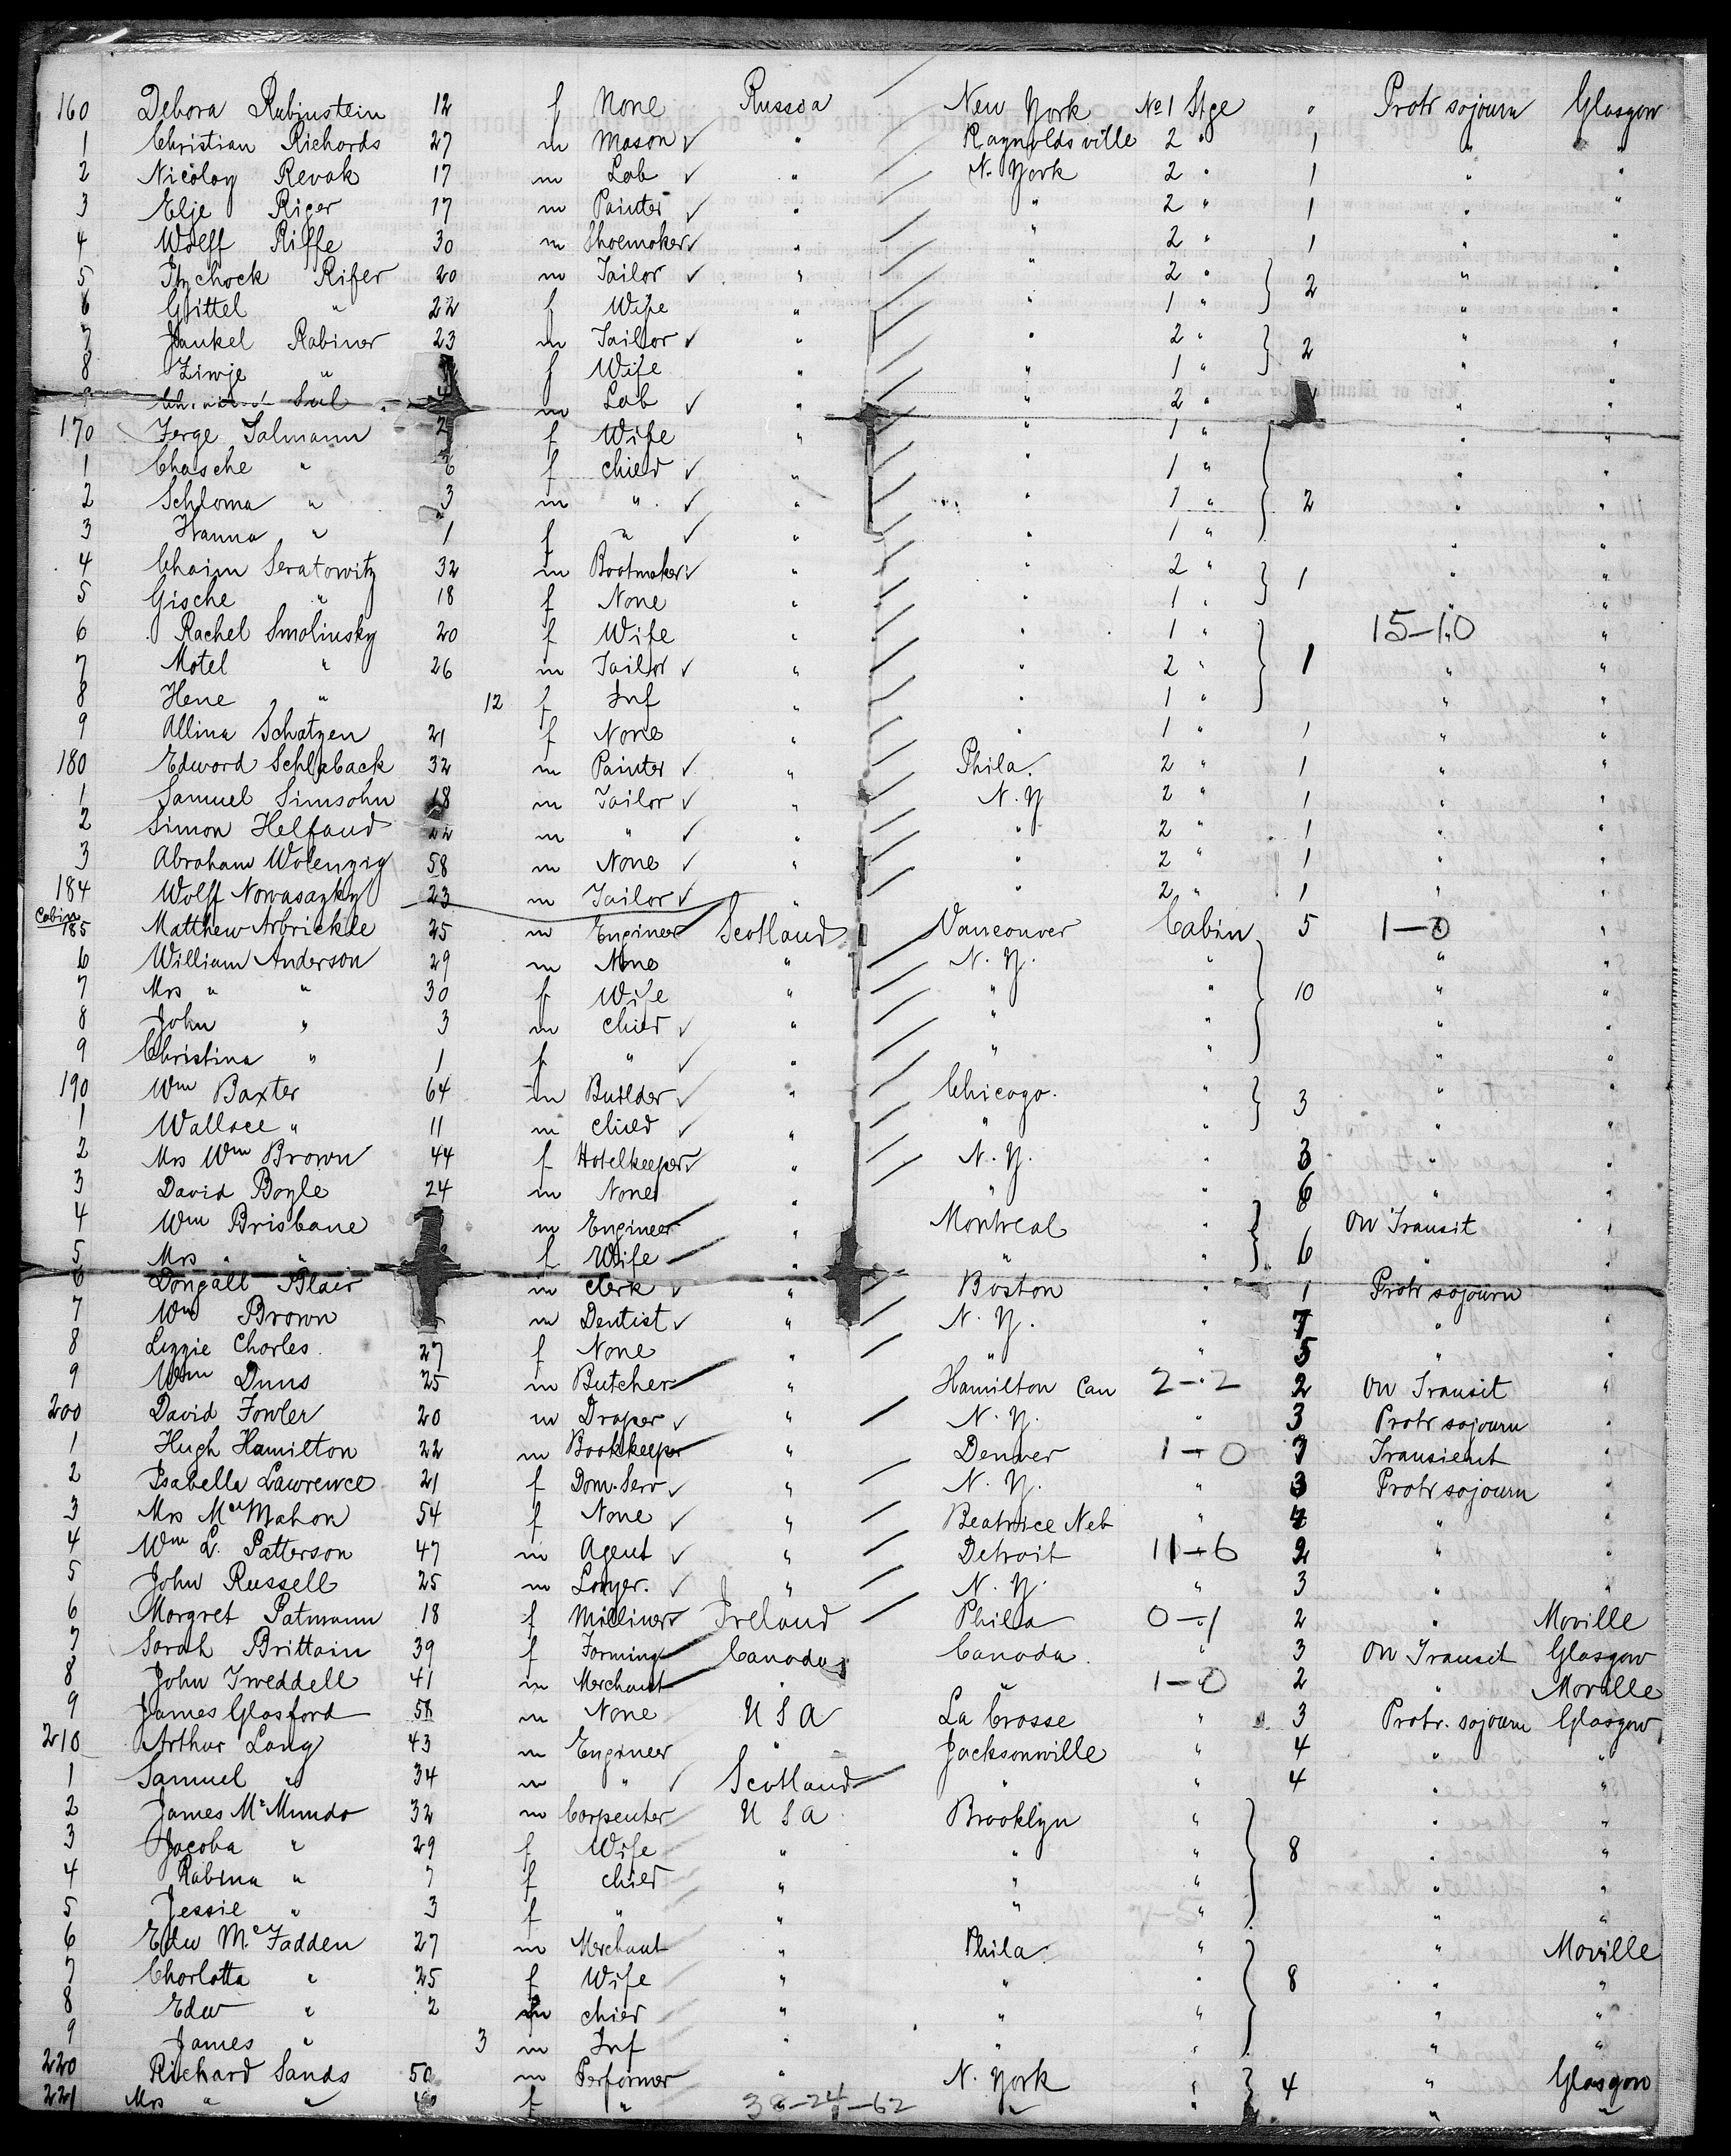 160 Debora Rubinstein 12 f None Russia New York No 1 Stge " Protr sojourn Glasgow
1 Christian Richards 27 m Mason ✓ " Raynoldsville 2 " 1 " "
2 Nicolay Revak 17 m Lab ✓ " N. York 2 " 1 " "
3 Elje Riger 17 m Painter ✓ " " 2 " 1 " "
4 Wolff Riffe 30 m Shoemaker ✓ " " 2 " 1 " "
5 Itzchock Rifer 20 m Tailor ✓ " " 2 " 2 " "
6 Gittel " 22 f Wife " " 1 " " "
7 Jankel Rabiner 23 m Tailor ✓ " " 2 " 2 " "
8 Ziwje " f Wife " " 1 " " "
9 Sal m Lab ✓ " " 2 " " "
170 Jerge Salmann 2 f Wife " " 1 " " "
1 Chasche " 6 f child ✓ " " 1 " " "
2 Schloma " 3 m " ✓ " " 1 " 2 " "
3 Hanna " 1 f " ✓ " " 1 " " "
4 Chaim Seratowitz 32 m Bootmaker ✓ " " 2 " 1 " "
5 Gische " 18 f None " " 1 " " "
6 Rachel Smolinsky 20 f Wife " " 1 " 15-10 " "
7 Motel " 26 m Tailor ✓ " " 2 " 1 " "
8 Hene " 12 f Inf " " 1 " " "
9 Allina Schatzen 21 f None " " 1 " 1 " "
180 Edword Schlaback 32 m Painter ✓ " Phila. 2 " 1 " "
1 Samuel Simsohn 18 m Tailor ✓ " N. Y 2 " 1 " "
2 Simon Helfand 22 m " ✓ " " 2 " 1 " "
3 Abraham Wolenzig 58 m None ✓ " " 2 " 1 " "
184 Wolff Nowasazky 23 m Tailor ✓ " " 2 " 1 " "
Cabin
185 Matthew Arbrickle 25 m Engineer Scotland Vancouver Cabin 5 1-0 "
6 William Anderson 29 m None " N. Y. " " "
7 Mrs " " 30 f Wife " " " 10 " "
8 John " 3 m child ✓ " " " " "
9 Christina " 1 f " ✓ " " " " "
190 Wm Baxter 64 m Builder ✓ " Chicago. " 3 " "
1 Wallace " 11 m child ✓ " " " " "
2 Mrs Wm Brown 44 f Hotelkeeper ✓ " N. Y. " 3 " "
3 David Boyle 24 m None " " " 6 " "
4 Wm Brisbane m Engineer " Montreal " On Transit "
5 Mrs " " f Wife " " " 6 " "
6 Dongall Blair m Clerk ✓ " Boston " 1 Protr sojourn "
7 Wm Brown m Dentist ✓ " N. Y. " 7 " "
8 Lizzie Charles 27 f None " " " 5 " "
9 Wm Duns 25 m Butcher " Hamilton Can 2-2 2 On Transit "
200 David Fowler 20 m Draper ✓ " N. Y. " 3 Protr sojourn "
1 Hugh Hamilton 22 m Bookkeeper " Denver 1-0 7 Transient "
2 Isabella Lawrence 21 f Dom. Serv ✓ " N. Y. " 3 Protr sojourn "
3 Mrs McMahon 54 f None ✓ " Beatrice Neb " " "
4 Wm L. Patterson 47 m Agent ✓ " Detroit 11-6 2 " "
5 John Russell 25 m Lawyer. ✓ " N. Y. " 3 " "
6 Morgret Patmann 18 f Milliner Ireland Phila 0-1 2 " Moville
7 Sarah Brittain 39 f Farming Canada Canada " 3 On Transit Glasgow
8 John Tweddell 41 m Merchant " " 1-0 2 " Moville
9 James Glasford 58 m None U S A La Crosse " 3 Protr. sojourn Glasgow
210 Arthur Lang 43 m Engineer " Jacksonville " 4 " "
1 Samuel " 34 m " ✓ Scotland " " 4 " "
2 James McMundo 32 m Carpenter U S A Brooklyn " " "
3 Jacoba " 29 f Wife " " " 8 " "
4 Rabina " 7 f child " " " " "
5 Jessie " 3 f " " " " " "
6 Edw McFadden 27 m Merchant " Phila " " Moville
7 Charlotta " 25 f Wife " " " 8 " "
8 Edw " 2 m child " " " " "
9 James " 3 m Inf " " " " "
220 Richard Sands 50 m Performer " N. York " 4 " Glasgow
221 Mrs " " 40 f " 38-24-62 " " " "